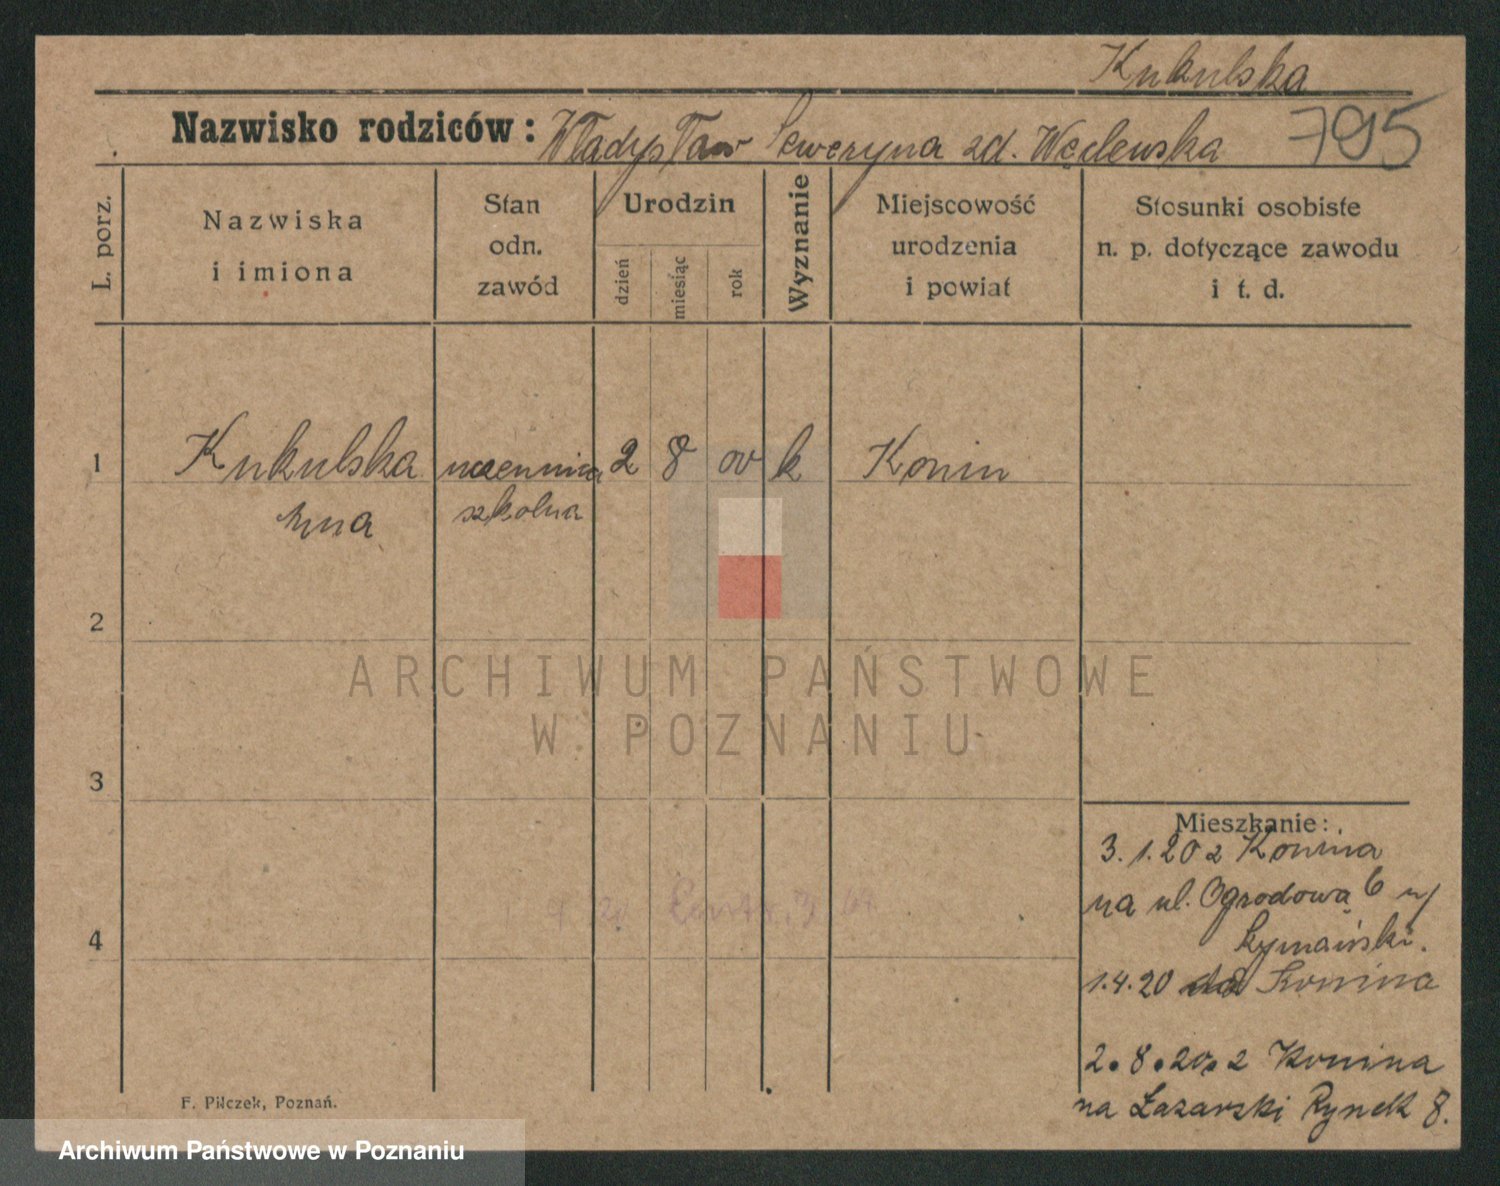 Kukulska
Nazwisko rodziców: Władysław Seweryna zd. Węclewska 795
L. porz.
Nazwiska
i imiona
Stan
odn.
zawód
Urodzin
dzień
miesiąc
rok
Wyznanie
Miejscowość
urodzenia
i powiat
Stosunki osobiste
n. p. dotyczące zawodu
i t. d.
1 Kukulska uczennica 2 8 k Konin
Anna szkolna
2
ARCHIWUM PAŃSTWOWE
W POZNANIU
3
Mieszkanie:
3.1.20 z Konina
na ul. Ogrodową 6
Rymański.
4
1.4.20 do Konina
2.8.20. z Konina
na Łazarski Rynek 8.
F. Pilczek, Poznań.
Archiwum Państwowe w Poznaniu